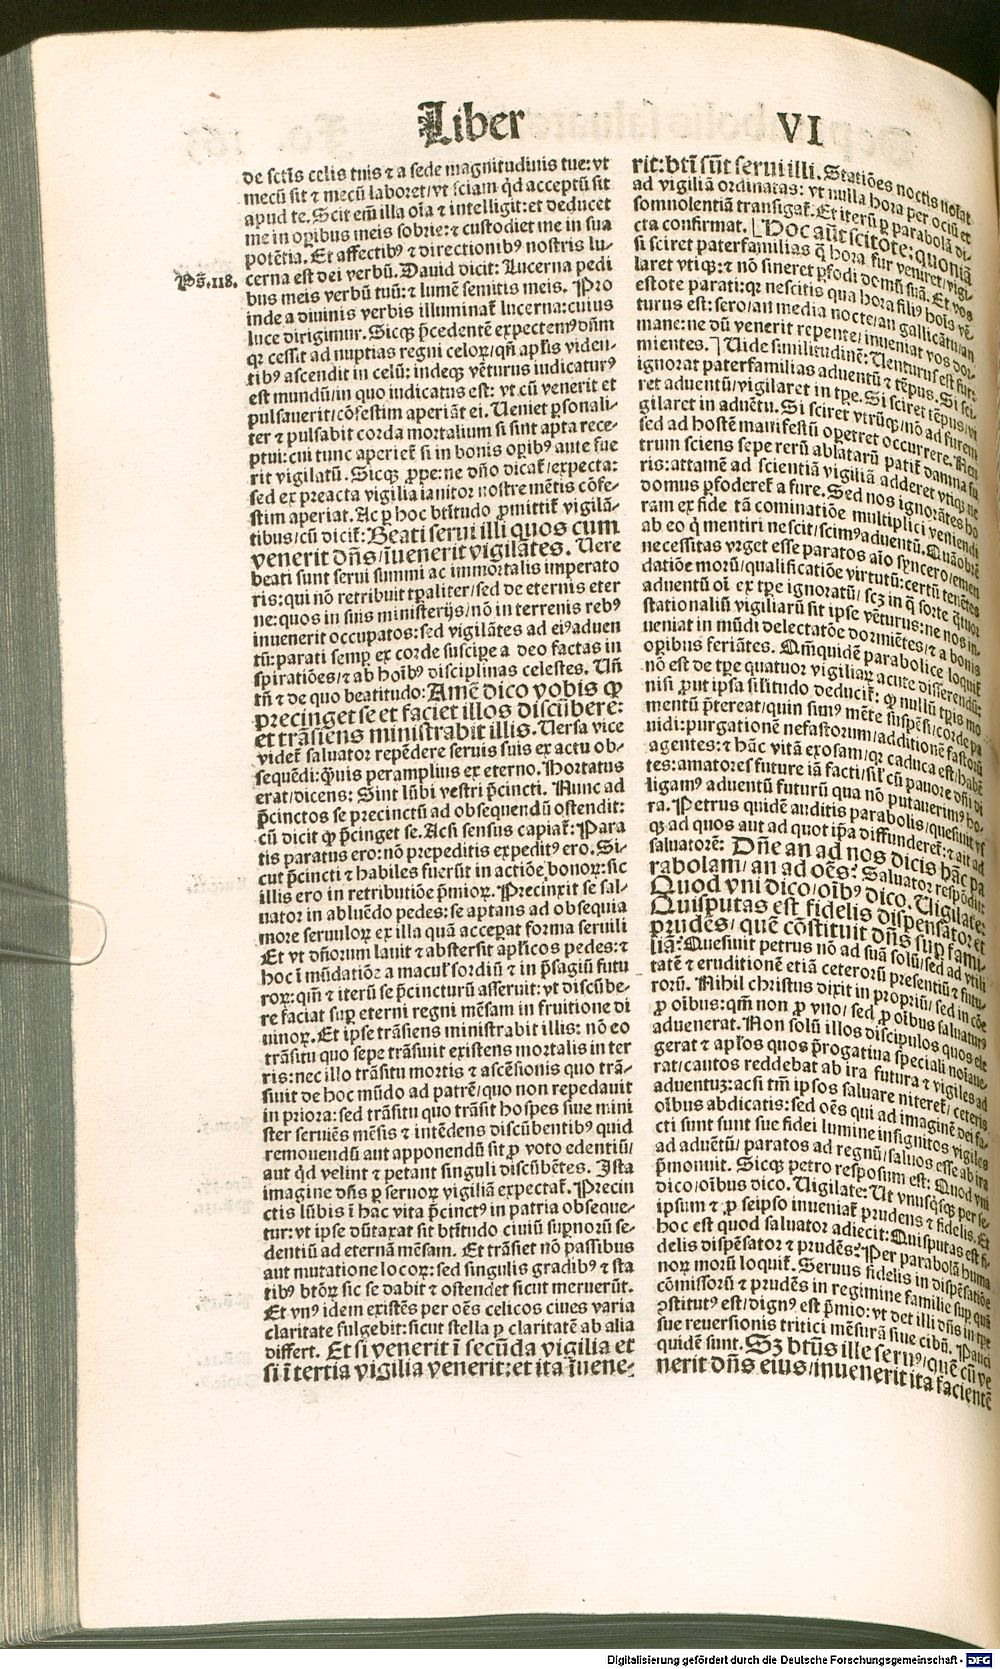 Liber VI
de sctīs celis tuis ⁊ a sede magnitudinis tue: vt
mecū sit ⁊ mecū laboret/vt sciam qd̄ acceptū sit
apud te. Scit em̄ illa oīa ⁊ intelligit: et deducet
me in oꝑibus meis sobrie: ⁊ custodiet me in sua
potētia. Et affectibꝰ ⁊ directionibꝰ nostris lu-
Ps̄.118.
cerna est dei verbū. Dauid dicit: Lucerna pedi
bus meis verbū tuū: ⁊ lumē semitis meis. Pro
inde a diuinis verbis illuminat᷑ lucerna: cuius
luce dirigimur. Sicqꝫ p̄cedentē expectemꝰ dn̄m
qꝛ cessit ad nuptias regni celoꝝ/qn̄ apl̄is viden-
tibꝰ ascendit in celū: indeqꝫ vēturus iudicaturꝰ
est mundū/in quo iudicatus est: vt cū venerit et
pulsauerit/cōfestim aperiāt ei. Ueniet ꝑsonali-
ter ⁊ pulsabit corda mortalium si sint apta rece-
ptui: cui tunc aperiet᷑ si in bonis oꝑibꝰ ante fue
rit vigilatū. Sicqꝫ ꝓpe: ne dn̄o dicat᷑/expecta:
sed ex preacta vigilia ianitor nostre mētis cōfe-
stim aperiat. Ac ꝑ hoc btītudo ꝓmittit᷑ vigilā-
tibus/cū dicit᷑: Beati serui illi quos cum
venerit dn̄s/īuenerit vigilātes. Uere
beati sunt serui summi ac immortalis imperato
ris: qui nō retribuit tp̄aliter/sed de eternis eter
ne: quos in suis ministerijs/nō in terrenis rebꝰ
inuenerit occupatos: sed vigilātes ad eiꝰ aduen
tū: parati semꝑ ex corde suscipe a deo factas in
spiratiōes/⁊ ab hoībꝰ disciplinas celestes. Un̄
tn̄ ⁊ de quo beatitudo: Amē dico vobis ꝙ
precinget se et faciet illos discūbere:
et trāsiens ministrabit illis. Uersa vice
videt᷑ saluator repēdere seruis suis ex actu ob-
sequēdi: q̄uis peramplius ex eterno. Hortatus
erat/dicens: Sint lūbi vestri p̄cincti. Nunc ad
p̄cinctos se precinctū ad obsequendū ostendit:
cū dicit ꝙ p̄cinget se. Acsi sensus capiat᷑: Para
tis paratus ero: nō prepeditis expeditꝰ ero. Si-
cut p̄cincti ⁊ habiles fuerūt in actiōe bonoꝝ: sic
illis ero in retributiōe p̄mioꝝ. Precinxit se sal-
uator in abluēdo pedes: se aptans ad obsequia
more seruuloꝝ ex illa quā acceꝑat forma seruili
Et vt dn̄orum lauit ⁊ abstersit apl̄icos pedes: ⁊
hoc ī mūdatiōꝛ a macul᷑ sordiū ⁊ in p̄sagiū futu
roꝝ: qm̄ ⁊ iterū se p̄cincturū asseruit: vt discūbe-
re faciat suꝑ eterni regni mēsam in fruitione di
uinoꝝ. Et ipse trāsiens ministrabit illis: nō eo
trāsitu quo sepe trāsiuit existens mortalis in ter
ris: nec illo trāsitu mortis ⁊ ascēsionis quo trā-
siuit de hoc mūdo ad patrē/quo non repedauit
in priora: sed trāsitu quo trāsit hospes siue mini
ster seruiēs mēsis ⁊ intēdens discūbentibꝰ quid
remouendū aut apponendū sit ꝓ voto edentiū/
aut qd̄ velint ⁊ petant singuli discūbētes. Ista
imagine dn̄s ꝑ seruoꝝ vigiliā expectat᷑. Precin
ctis lūbis ī hac vita p̄cinctꝰ in patria obseque-
tur: vt ipse dūtaxat sit btītudo ciuiū suꝑnorū se-
dentiū ad eternā mēsam. Et trāsiet nō passibus
aut mutatione locoꝝ: sed singulis gradibꝰ ⁊ sta
tibꝰ btōꝝ sic se dabit ⁊ ostendet sicut meruerūt.
Et vnꝰ idem existēs per oēs celicos ciues varia
claritate fulgebit: sicut stella ꝑ claritatē ab alia
differt. Et si venerit ī secūda vigilia et
si ī tertia vigilia venerit: et ita īuene-
rit: btī sūt serui illi. Statiōes noctis notat
ad vigiliā ordinatas: vt nulla hora per ociū et
somnolentiā transigat᷑. Et iterū ꝑ parabolā di-
cta confirmat. [Hoc aūt scitote: quoniā
si sciret paterfamilias q̄ hora fur veniret/vigi-
laret vtiqꝫ: ⁊ nō sineret ꝑfodi domū suā. Et vos
estote parati: qꝛ nescitis qua hora filiꝰ hoīs vē-
turus est: sero/an media nocte/an gallicātu/an
mane: ne dū venerit repente/inueniat vos dor-
mientes.] Uide similitudinē: Uenturus est fur:
ignorat paterfamilias aduentū ⁊ tēpus. Si sci-
ret aduentū/vigilaret in tp̄e. Si sciret tēpus/vi
gilaret in aduētu. Si sciret vtrūqꝫ/nō ad furem
sed ad hostē manifestū oꝑteret occurrere. Neu
trum sciens sepe rerū ablatarū patit᷑ damna fu
ris: attamē ad scientiā vigiliā adderet vtiqꝫ ne
domus ꝑfoderet᷑ a fure. Sed nos ignorātes ho
ram ex fide tā cominatiōe multiplici veniendi
ab eo q̄ mentiri nescit/scimꝰ aduentū. Quāobrē
necessitas vrget esse paratos aīo syncero/emen
datiōe morū/qualificatiōe virtutū: certū tenētes
aduentū oī ex tp̄e ignoratū/scꝫ in q̄ sorte q̄tuor
stationaliū vigiliarū sit ipse vēturus: ne nos in-
ueniat in mūdi delectatōe dormiētes/⁊ a bonis
oꝑibus feriātes. Qm̄quidē parabolice loquit᷑
nō est de tp̄e quatuor vigiliaꝝ acute disserendū:
nisi ꝓut ipsa sil̄itudo deducit᷑: ꝙ nullū tp̄is mo
mentū p̄tereat/quin simꝰ mēte suspēsi/corde pa
uidi: purgationē nefastorum/additionē fastorū
agentes: ⁊ hāc vitā exosam/qꝛ caduca est/habē
tes: amatores future iā facti/sil᷑ cū pauore dn̄i di
ligamꝰ aduentū futurū qua nō putauerimꝰ ho-
ra. Petrus quidē auditis parabolis/quesiuit vs
qꝫ ad quos aut ad quot ip̄a diffunderet᷑: ⁊ ait ad
saluatorē: Dn̄e an ad nos dicis hāc pa
rabolam/an ad oēs? Saluator respōdit
Quod vni dico/oībꝰ dico. Uigilate.
Quisputas est fidelis dispensator et
prudēs/quē cōstituit dn̄s suꝑ fami-
liā? Quesiuit petrus nō ad suā solū/sed ad vtili
tatē ⁊ eruditionē etiā ceterorū presentiū ⁊ futu-
rorū. Nihil christus dixit in propriū/sed in cōe
ꝓ oībus: qm̄ non ꝓ vno/sed ꝓ oībus saluaturꝰ
aduenerat. Non solū illos discipulos quos ele
gerat ⁊ apl̄os quos p̄rogatiua speciali notaue-
rat/cautos reddebat ab ira futura ⁊ vigiles ad
aduentuꝫ: acsi tm̄ ipsos saluare niteret᷑/ceteris
oībus abdicatis: sed oēs qui ad imaginē dei fa-
cti sunt sunt sue fidei lumine insignitos vigiles
ad aduētū/paratos ad regnū/saluos esse ab ira
p̄monuit. Sicqꝫ petro resposum est: Quod vni
dico/oībus dico. Uigilate: Ut vnusq̄sqꝫ per se-
ipsum ⁊ ꝓ seipso inueniat᷑ prudens ⁊ fidelis. Et
hoc est quod saluator adiecit: Quisputas est fi-
delis dispēsator ⁊ prudēs? Per parabolā huma
noꝝ morū loquit᷑. Seruus fidelis in dispēsatiōe
cōmissorū ⁊ prudēs in regimine familie suꝑ quā
ꝯstitutꝰ est/dignꝰ est p̄mio: vt det illi dn̄s in tp̄e
sue reuersionis tritici mēsurā siue cibū. Pauci
quidē sunt. Sꝫ btūs ille seruꝰ/quē cū ve
nerit dn̄s eius/inuenerit ita facientē
Digitalisierung gefördert durch die Deutsche Forschungsgemeinschaft - DFG